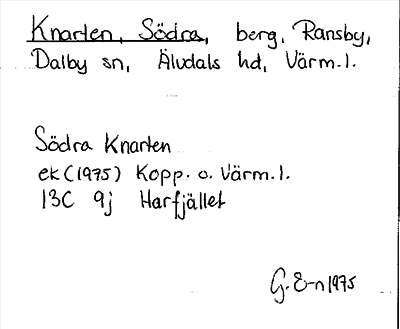 Knarten, Södra, berg, Ransby,
Dalby sn, Älvdals hd, Värm.l.
Södra Knarten
ek (1975) Kopp. o. Värm.l.
13C 9j Harfjället
G. E-n 1975